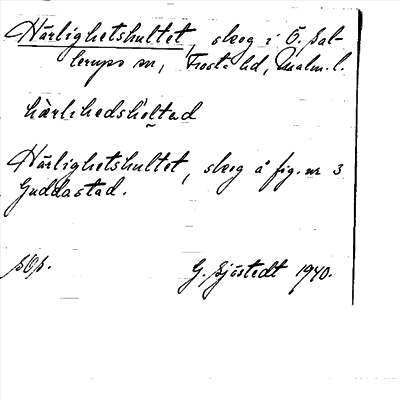 Härlighetshultet, skog i Ö. Sal-
lerups sn, Frosta hd, Malm. l.
härlihedshòltad
Härlighetshultet, skog å fig. nr 3
Guddastad.
G. Sjöstedt 1940.